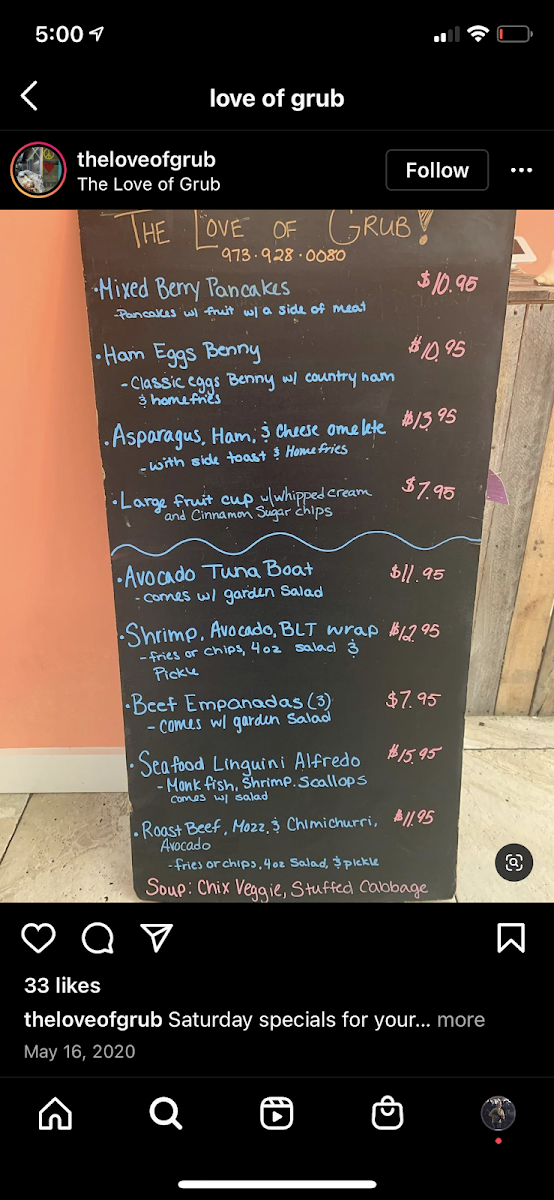 5:00
love of grub
theloveofgrub
The Love of Grub
Follow
THE LOVE OF GRUB!
973.928.0080
•Mixed Berry Pancakes $10.95
-Pancakes w/ fruit w/ a side of meat
•Ham Eggs Benny $10.95
-Classic eggs Benny w/ country ham
& homefries
•Asparagus, Ham, & Cheese omelete $13.95
-with side toast & Homefries
•Large fruit cup w/whipped cream $7.95
and Cinnamon Sugar chips
•Avocado Tuna Boat $11.95
-comes w/ garden Salad
•Shrimp, Avocado, BLT wrap $12.95
-fries or chips, 4oz salad &
Pickle
•Beef Empanadas (3) $7.95
-comes w/ garden Salad
•Seafood Linguini Alfredo $15.95
-Monkfish, Shrimp. Scallops
comes w/ salad
•Roast Beef, Mozz, & Chimichurri, $11.95
Avocado
-fries or chips, 4oz Salad, & pickle
Soup: Chix Veggie, Stuffed Cabbage
33 likes
theloveofgrub Saturday specials for your... more
May 16, 2020